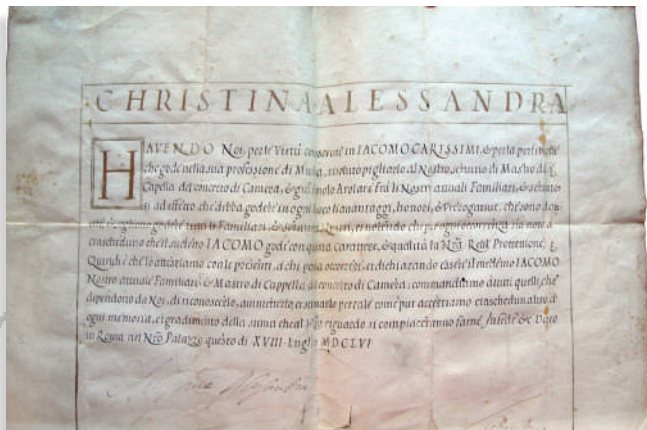 CHRISTINA ALESSANDRA
HAVENDO Noi, per le Virtù conosciute in IACOMO CARISSIMI, & per la
che gode nella sua professione di Musica, risoluto pigliarlo al Nostro servitio di Mastro di
Capella del concerto di Camera, & arolare frà li Nostri attuali Familiari, &
ad effetto che debba godere in ogni luoco honori, & Prerogative, che sono
godere tutti li Familiari, & Nostri, et volendo che per ogni occorrenza sia noto a
ciascheduno che il sudetto IACOMO gode con questo carattere, & qualità la Nra Real Protettione.
Quindi è che lo attestiamo con le presenti, a chi possa occorrere, et dichiarando essere il medemo IACOMO
Nostro attuale Familiare, & Mastro di Cappella del concerto di Camera, commandiamo à tutti quelli, che
dipendono da Noi, di riconoscerlo, ammetterlo, et stimarlo per tale come pur accertiamo ciaschedun altro d'
ogni memoria, et gradimento della stima che al Nro riguardo si compiaceranno farne. In fede &c. Dato
in Roma nel Nro Palazzo questo di XVIII Luglio MDCLVI